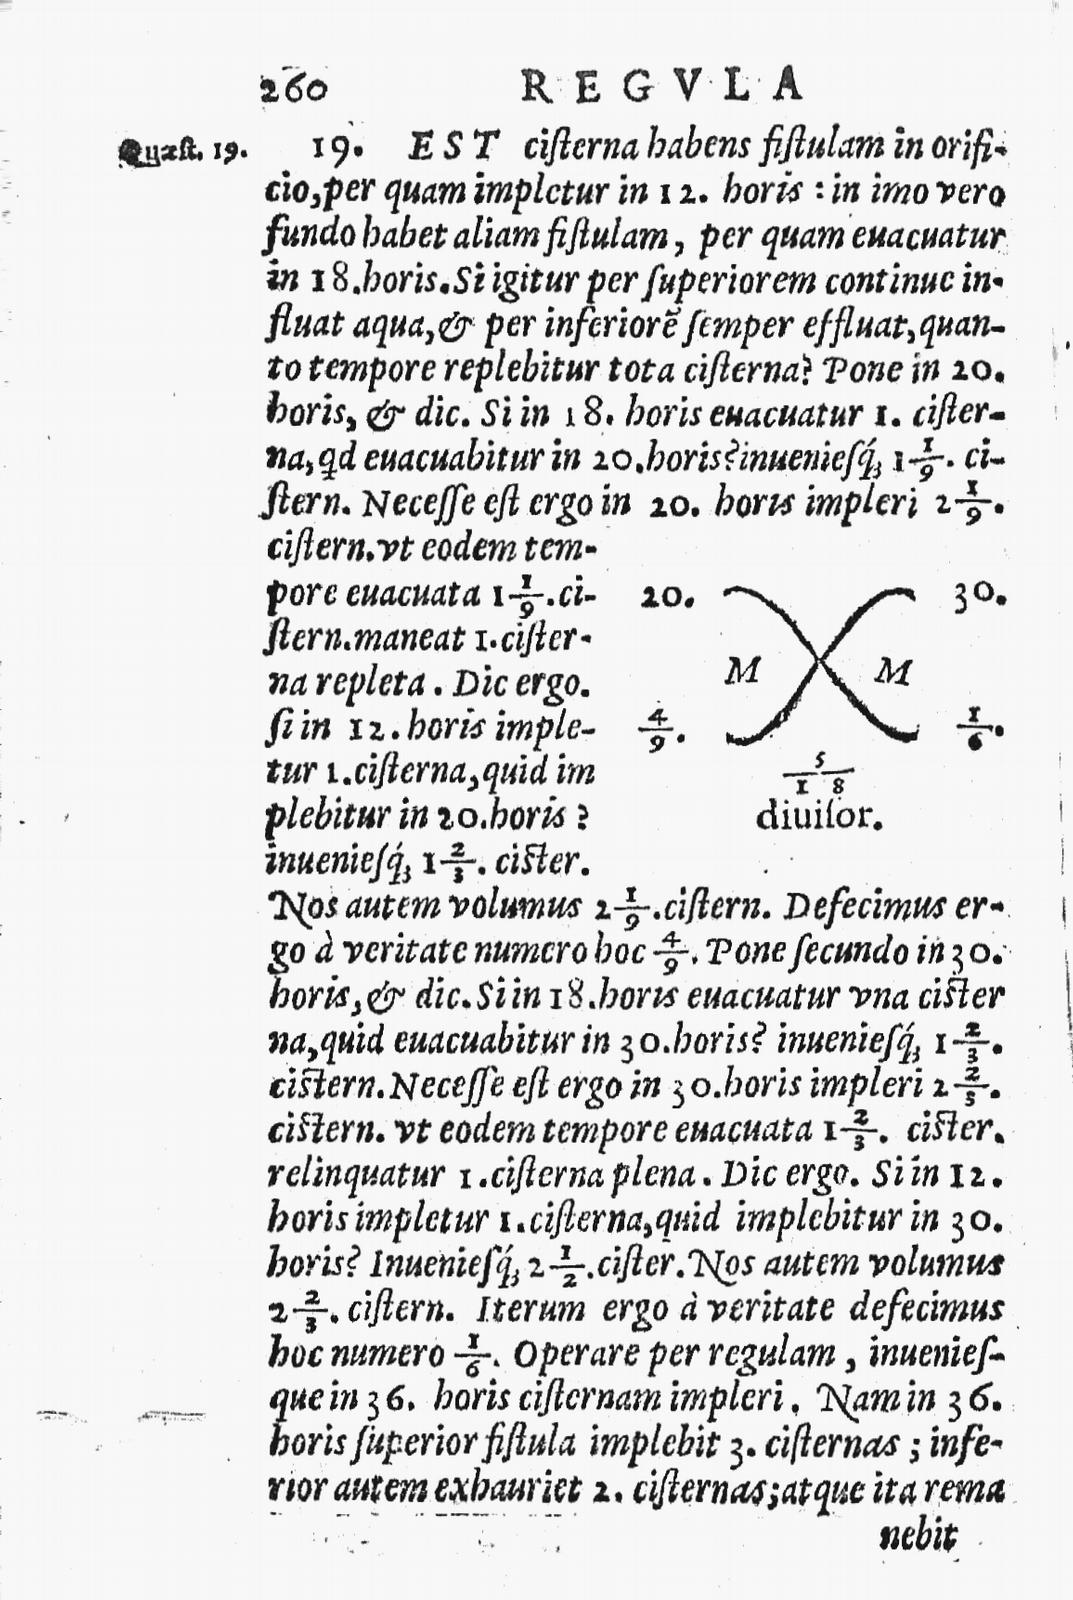 260 REGVLA
Quæst. 19. 19. EST cisterna habens fistulam in orifi-
cio, per quam impletur in 12. horis : in imo vero
fundo habet aliam fistulam, per quam euacuatur
in 18. horis. Si igitur per superiorem continue in-
fluat aqua, & per inferiorẽ semper effluat, quan-
to tempore replebitur tota cisterna? Pone in 20.
horis, & dic. Si in 18. horis euacuatur 1. cister-
na, qd euacuabitur in 20. horis? inueniesq́; 1 1/9. ci-
stern. Necesse est ergo in 20. horis impleri 2 1/9.
cistern. vt eodem tem-
pore euacuata 1 1/9. ci-
stern. maneat 1. cister-
na repleta. Dic ergo.
si in 12. horis imple-
tur 1. cisterna, quid im
plebitur in 20. horis?
inueniesq́; 1 2/3. cister.
20. 30.
M M
4/9. 1/6.
5/18
diuisor.
Nos autem volumus 2 1/9. cistern. Defecimus er-
go à veritate numero hoc 4/9. Pone secundo in 30.
horis, & dic. Si in 18. horis euacuatur vna cister
na, quid euacuabitur in 30. horis? inueniesq́; 1 2/3.
cistern. Necesse est ergo in 30. horis impleri 2 2/3.
cistern. vt eodem tempore euacuata 1 2/3. cister.
relinquatur 1. cisterna plena. Dic ergo. Si in 12.
horis impletur 1. cisterna, quid implebitur in 30.
horis? Inueniesq́; 2 1/2. cister. Nos autem volumus
2 2/3. cistern. Iterum ergo à veritate defecimus
hoc numero 1/6. Operare per regulam, inuenies-
que in 36. horis cisternam impleri. Nam in 36.
horis superior fistula implebit 3. cisternas; infe-
rior autem exhauriet 2. cisternas; atque ita rema
nebit